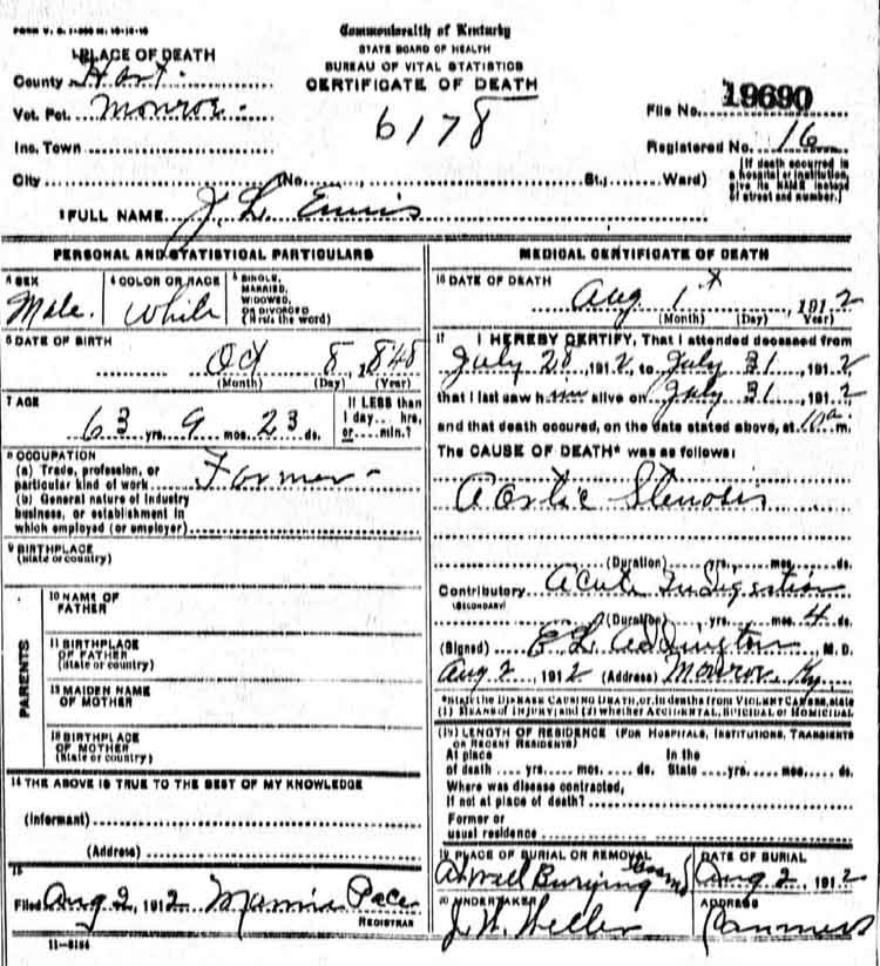 FORM V. S. 1-300 M. 10-15-10
Commonwealth of Kentucky
STATE BOARD OF HEALTH
BUREAU OF VITAL STATISTICS
CERTIFICATE OF DEATH
1 PLACE OF DEATH
County Hart.
Vot. Pct. Monroe
Ins. Town
City (No. , St.; Ward)
6178
File No. 19690
Registered No. 16
[If death occurred in a hospital or institution, give its NAME instead of street and number.]
2 FULL NAME J. L. Ennis
PERSONAL AND STATISTICAL PARTICULARS
3 SEX
Male.
4 COLOR OR RACE
White
5 SINGLE,
MARRIED,
WIDOWED,
OR DIVORCED
(Write the word)
6 DATE OF BIRTH
Oct 8, 1848
(Month) (Day) (Year)
7 AGE
63 yrs. 9 mos. 23 ds.
If LESS than
1 day... hrs.
or.....min.?
8 OCCUPATION
(a) Trade, profession, or
particular kind of work Farmer
(b) General nature of industry
business, or establishment in
which employed (or employer)
9 BIRTHPLACE
(state or country)
PARENTS
10 NAME OF
FATHER
11 BIRTHPLACE
OF FATHER
(state or country)
12 MAIDEN NAME
OF MOTHER
13 BIRTHPLACE
OF MOTHER
(State or country)
14 THE ABOVE IS TRUE TO THE BEST OF MY KNOWLEDGE
(Informant)
(Address)
15
Filed Aug 2, 1912 Mamie Pace
REGISTRAR
11-5184
MEDICAL CERTIFICATE OF DEATH
16 DATE OF DEATH
Aug 1st, 1912
(Month) (Day) Year)
17 I HEREBY CERTIFY, That I attended deceased from
July 28, 1912, to July 31, 1912
that I last saw him alive on July 31, 1912
and that death occured, on the date stated above, at 10 a m.
The CAUSE OF DEATH* was as follows:
Aortic Stenosis
(Duration) yrs. mos. ds.
Contributory Acute Indigestion
(SECONDARY)
(Duration) yrs. mos. 4 ds.
(Signed) E. L. Addington M. D.
Aug 2, 1912 (Address) Monroe, Ky.
*State the DISEASE CAUSING DEATH, or, in deaths from VIOLENT CAUSES, state
(1) MEANS OF INJURY; and (2) whether ACCIDENTAL, SUICIDAL or HOMICIDAL
(18) LENGTH OF RESIDENCE (FOR HOSPITALS, INSTITUTIONS, TRANSIENTS
OR RECENT RESIDENTS)
At place In the
of death .... yrs. .... mos. .... ds. State ....yrs. .... mos. .... ds.
Where was disease contracted,
If not at place of death?
Former or
usual residence
19 PLACE OF BURIAL OR REMOVAL
Burying
DATE OF BURIAL
Aug 2, 1912
20 UNDERTAKER
J. W. Heller
ADDRESS
Canmer